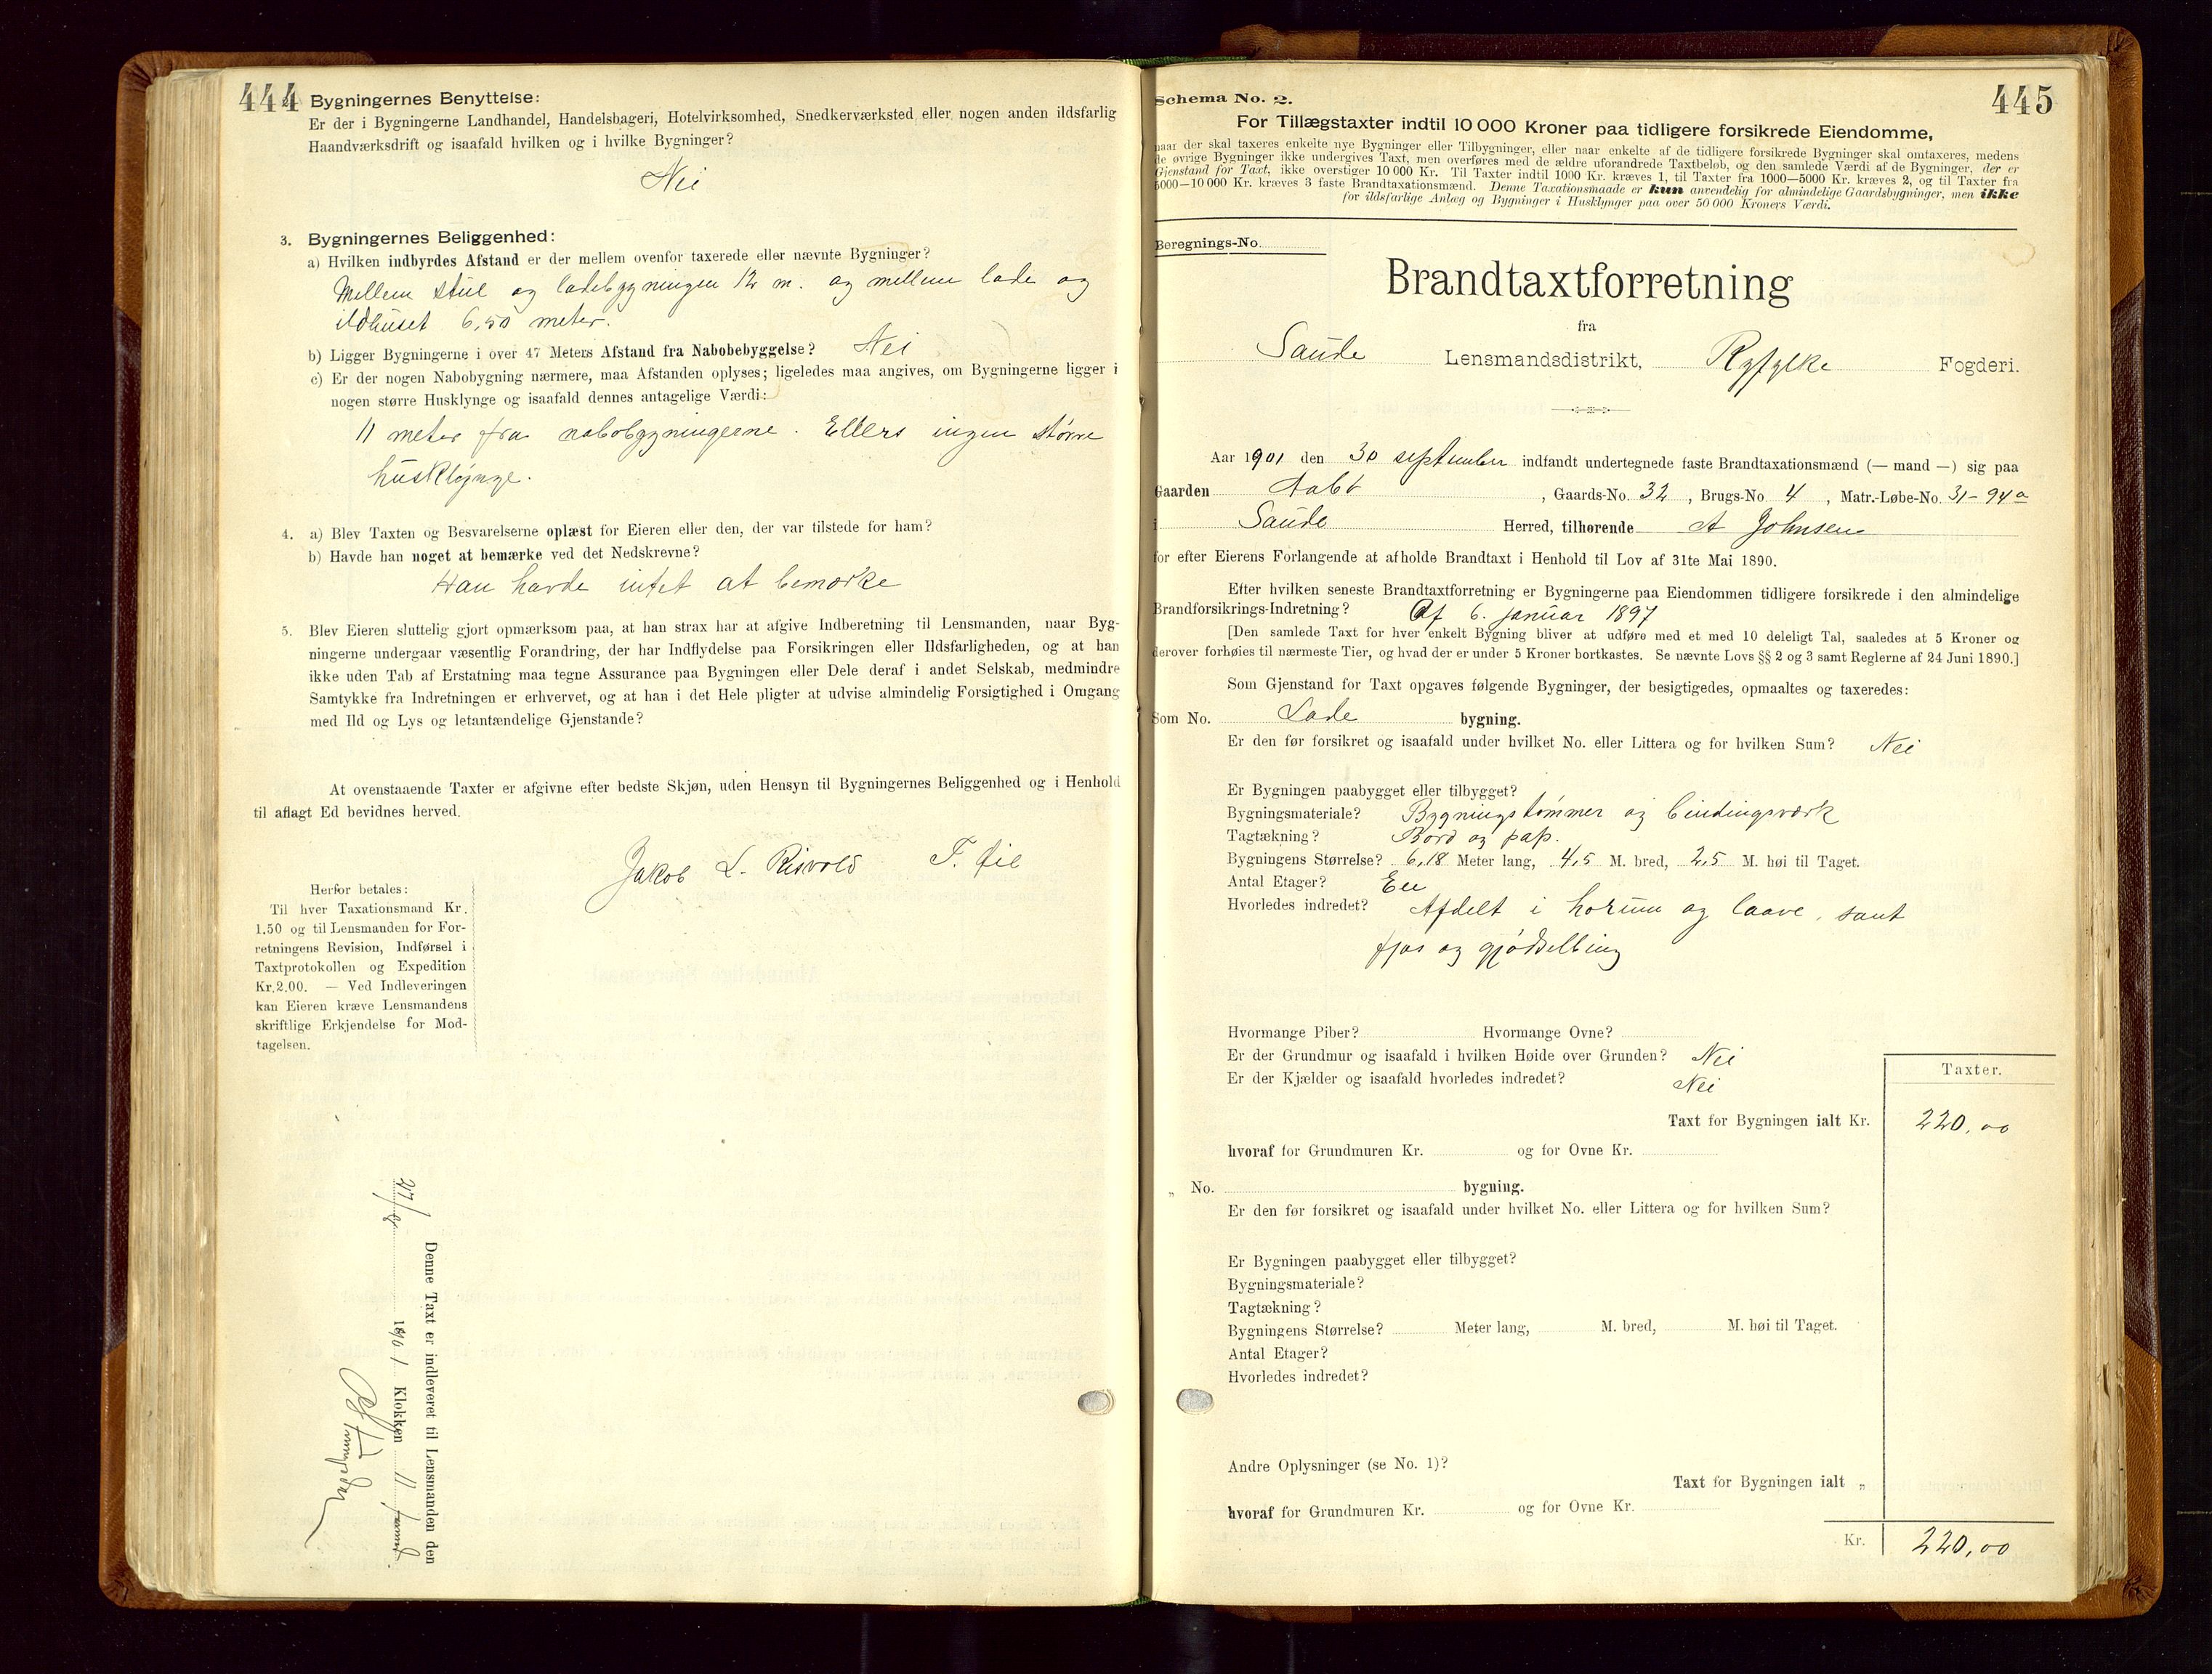 444
Bygningernes Benyttelse:
Er der i Bygningerne Landhandel, Handelsbageri, Hotelvirksomhed, Snedkerværksted eller nogen anden ildsfarlig
Haandværksdrift og isaafald hvilken og i hvilke Bygninger?
Nei
3. Bygningernes Beliggenhed:
a) Hvilken indbyrdes Afstand er der mellem ovenfor taxerede eller nævnte Bygninger?
Mellem stue og ladebygningen 12 m. og mellem lade og
ildhuset 6,50 meter.
b) Ligger Bygningerne i over 47 Meters Afstand fra Nabobebyggelse? Nei
c) Er der nogen Nabobygning nærmere, maa Afstanden oplyses; ligeledes maa angives, om Bygningerne ligger i
nogen større Husklynge og isaafald dennes antagelige Værdi:
11 meter fra nabobygningerne. Ellers ingen større
husklynge.
4. a) Blev Taxten og Besvarelserne oplæst for Eieren eller den, der var tilstede for ham?
b) Havde han noget at bemærke ved det Nedskrevne?
Han havde intet at bemærke
5. Blev Eieren sluttelig gjort opmærksom paa, at han strax har at afgive Indberetning til Lensmanden, naar Byg-
ningerne undergaar væsentlig Forandring, der har Indflydelse paa Forsikringen eller Ildsfarligheden, og at han
ikke uden Tab af Erstatning maa tegne Assurance paa Bygningen eller Dele deraf i andet Selskab, medmindre
Samtykke fra Indretningen er erhvervet, og at han i det Hele pligter at udvise almindelig Forsigtighed i Omgang
med Ild og Lys og letantændelige Gjenstande?
At ovenstaaende Taxter er afgivne efter bedste Skjøn, uden Hensyn til Bygningernes Beliggenhed og i Henhold
til aflagt Ed bevidnes herved.
Jakob L. Risvold T.
Herfor betales:
Til hver Taxationsmand Kr.
1.50 og til Lensmanden for For-
retningens Revision, Indførsel i
Taxtprotokollen og Expedition
Kr.2.00. — Ved Indleveringen
kan Eieren kræve Lensmandens
skriftlige Erkjendelse for Mod-
tagelsen.
Denne Taxt er indleveret til Lensmanden den
1901 Klokken 11 formd.
445
Schema No. 2.
For Tillægstaxter indtil 10 000 Kroner paa tidligere forsikrede Eiendomme,
naar der skal taxeres enkelte nye Bygninger eller Tilbygninger, eller naar enkelte af de tidligere forsikrede Bygninger skal omtaxeres, medens
de øvrige Bygninger ikke undergives Taxt, men overføres med de ældre uforandrede Taxtbeløb, og den samlede Værdi af de Bygninger, der er
Gjenstand for Taxt, ikke overstiger 10 000 Kr. Til Taxter indtil 1000 Kr. kræves 1, til Taxter fra 1000—5000 Kr. kræves 2, og til Taxter fra
5000—10 000 Kr. kræves 3 faste Brandtaxationsmænd. Denne Taxationsmaade er kun anvendelig for almindelige Gaardsbygninger, men ikke
for ildsfarlige Anlæg og Bygninger i Husklynger paa over 50 000 Kroners Værdi.
Beregnings-No.
Brandtaxtforretning
fra
Saude Lensmandsdistrikt, Ryfylke Fogderi.
Aar 1901 den 30 september indfandt undertegnede faste Brandtaxationsmænd (— mand —) sig paa
Gaarden Aabø, Gaards-No. 32, Brugs-No. 4, Matr.-Løbe-No. 31-94a
i Saude Herred, tilhørende A Johnsen
for efter Eierens Forlangende at afholde Brandtaxt i Henhold til Lov af 31te Mai 1890.
Efter hvilken seneste Brandtaxtforretning er Bygningerne paa Eiendommen tidligere forsikrede i den almindelige
Brandforsikrings-Indretning? Af 6. januar 1897
[Den samlede Taxt for hver enkelt Bygning bliver at udføre med et med 10 deleligt Tal, saaledes at 5 Kroner og
derover forhøies til nærmeste Tier, og hvad der er under 5 Kroner bortkastes. Se nævnte Lovs §§ 2 og 3 samt Reglerne af 24 Juni 1890.]
Som Gjenstand for Taxt opgaves følgende Bygninger, der besigtigedes, opmaaltes og taxeredes:
Som No. Lade bygning.
Er den før forsikret og isaafald under hvilket No. eller Littera og for hvilken Sum? Nei
Er Bygningen paabygget eller tilbygget?
Bygningsmateriale? Bygningstømmer og bindingsværk
Tagtækning? Bord og pap.
Bygningens Størrelse? 6,18 Meter lang, 4,5 M. bred, 2,5 M. høi til Taget.
Antal Etager? En
Hvorledes indredet? Afdelt i horum og laave, samt
fjøs og gjødselbing
Hvormange Piber? Hvormange Ovne?
Er der Grundmur og isaafald i hvilken Høide over Grunden? Nei
Er der Kjælder og isaafald hvorledes indredet? Nei
Taxter.
Taxt for Bygningen ialt Kr. 220,00
hvoraf for Grundmuren Kr. og for Ovne Kr.
„ No. bygning.
Er den før forsikret og isaafald under hvilket No. eller Littera og for hvilken Sum?
Er Bygningen paabygget eller tilbygget?
Bygningsmateriale?
Tagtækning?
Bygningens Størrelse? Meter lang, M. bred, M. høi til Taget.
Antal Etager?
Hvorledes indredet?
Andre Oplysninger (se No. 1)?
Taxt for Bygningen ialt „
hvoraf for Grundmuren Kr. og for Ovne Kr.
Kr. 220,00